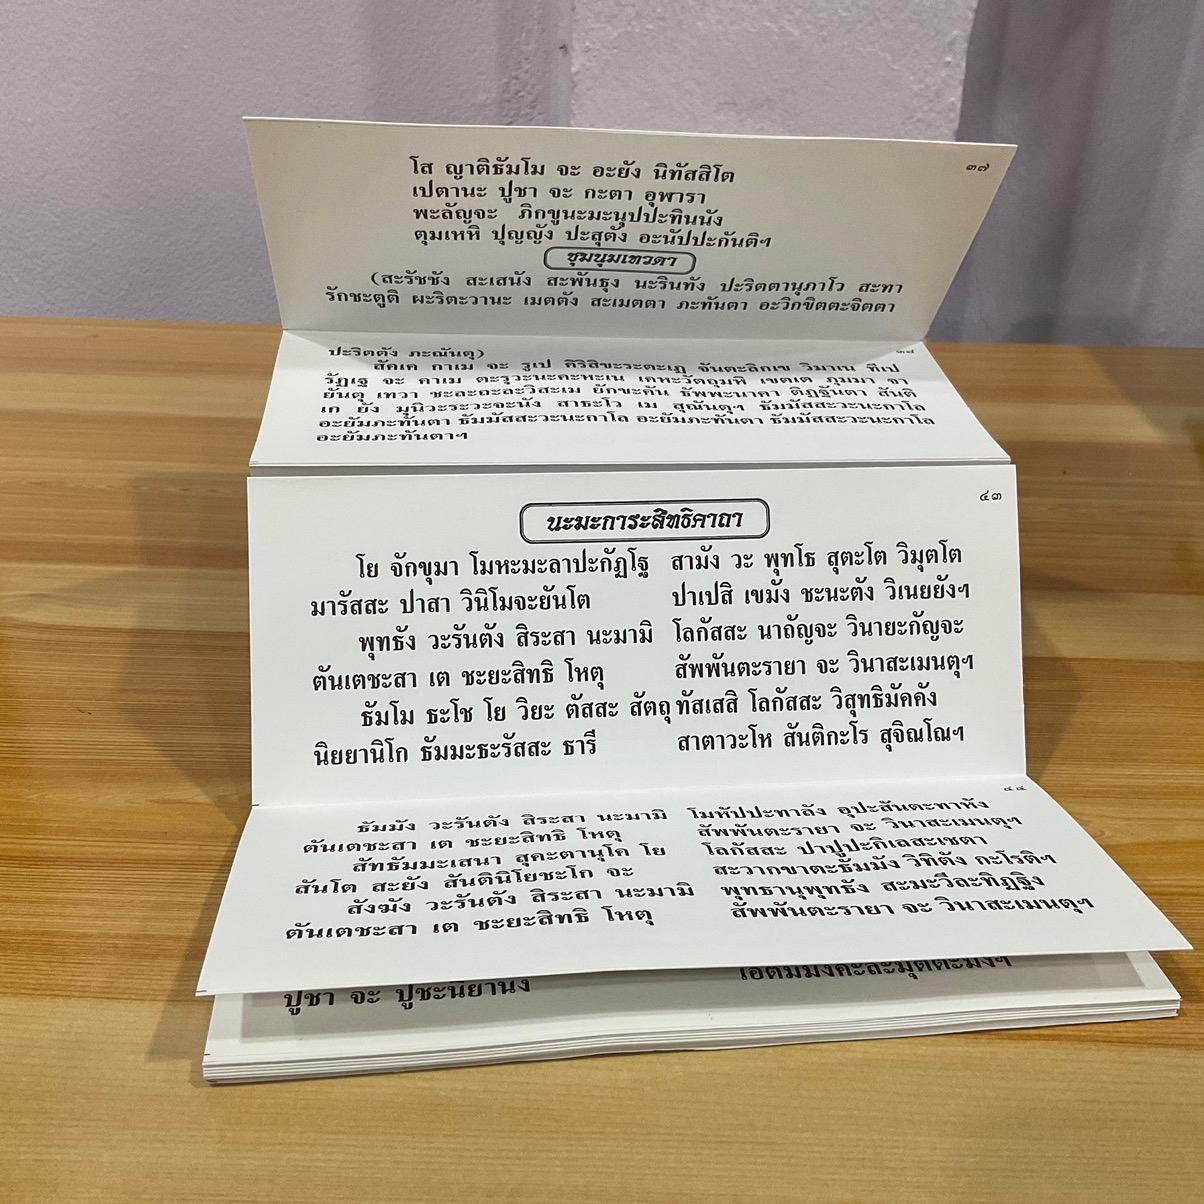 ๓๗
โส ญาติธัมโม จะ อะยัง นิทัสสิโต
เปตานะ ปูชา จะ กะตา อุฬารา
พะลัญจะ ภิกขูนะมะนุปปะทินนัง
ตุมเหหิ ปุญญัง ปะสุตัง อะนัปปะกันติฯ
ชุมนุมเทวดา
(สะรัชชัง สะเสนัง สะพันธุง นะรินทัง ปะริตตานุภาโว สะทา
รักขะตูติ ผะริตะวานะ เมตตัง สะเมตตา ภะทันตา อะวิกขิตตะจิตตา
๓๘
ปะริตตัง ภะณันตุ)
สัคเค กาเม จะ รูเป คิริสิขะระตะเฏ จันตะลิกเข วิมาเน ทีเป
รัฏเฐ จะ คาเม ตะรุวะนะคะหะเน เคหะวัตถุมหิ เขตเต ภุมมา จา
ยันตุ เทวา ชะละถะละวิสะเม ยักขะคัน ธัพพะนาคา ติฏฐันตา สันติ
เก ยัง มุนิวะระวะจะนัง สาธะโว เม สุณันตุฯ ธัมมัสสะวะนะกาโล
อะยัมภะทันตา ธัมมัสสะวะนะกาโล อะยัมภะทันตา ธัมมัสสะวะนะกาโล
อะยัมภะทันตาฯ
๔๓
นะมะการะสิทธิคาถา
โย จักขุมา โมหะมะลาปะกัฏโฐ สามัง วะ พุทโธ สุตะโต วิมุตโต
มารัสสะ ปาสา วินิโมจะยันโต ปาเปสิ เขมัง ชะนะตัง วิเนยยังฯ
พุทธัง วะรันตัง สิระสา นะมามิ โลกัสสะ นาถัญจะ วินายะกัญจะ
ตันเตชะสา เต ชะยะสิทธิ โหตุ สัพพันตะรายา จะ วินาสะเมนตุฯ
ธัมโม ธะโช โย วิยะ ตัสสะ สัตถุ ทัสเสสิ โลกัสสะ วิสุทธิมัคคัง
นิยยานิโก ธัมมะธะรัสสะ ธารี สาตาวะโห สันติกะโร สุจิณโณฯ
๔๔
ธัมมัง วะรันตัง สิระสา นะมามิ โมหัปปะทาลัง อุปะสันตะทาหัง
ตันเตชะสา เต ชะยะสิทธิ โหตุ สัพพันตะรายา จะ วินาสะเมนตุฯ
สัทธัมมะเสนา สุคะตานุโค โย โลกัสสะ ปาปูปะกิเลสะเชตา
สันโต สะยัง สันตินิโยชะโก จะ สะวากขาตะธัมมัง วิทิตัง กะโรติฯ
สังฆัง วะรันตัง สิระสา นะมามิ พุทธานุพุทธัง สะมะวีละทิฏฐิง
ตันเตชะสา เต ชะยะสิทธิ โหตุ สัพพันตะรายา จะ วินาสะเมนตุฯ
เอตัมมังคะละมุตตะมังฯ
ปูชา จะ ปูชะนียานัง